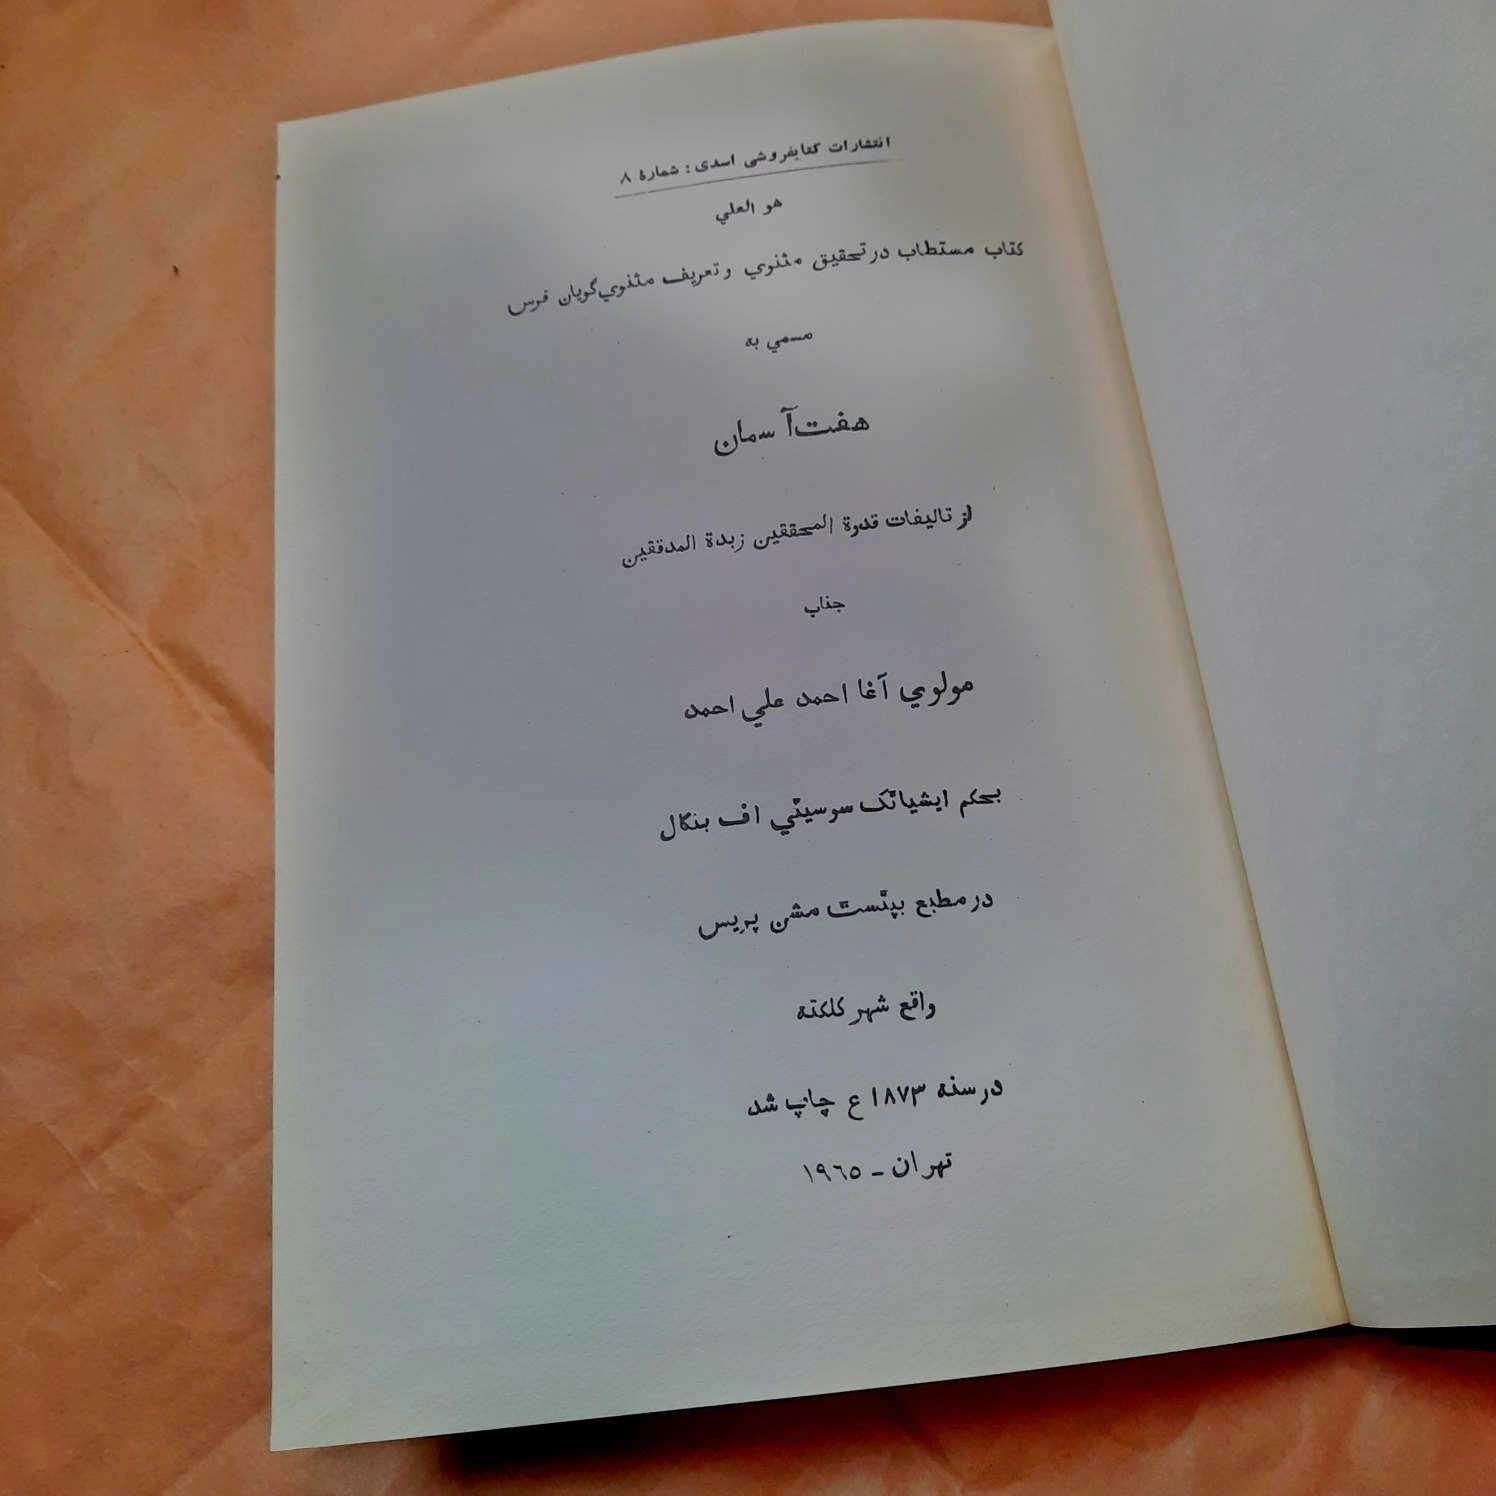 انتشارات کتابفروشی اسدی : شمارهٔ ۸
هو العلي
کتاب مستطاب در تحقیق مثنوي و تعریف مثنوي گویان فرس
مسمي به
هفت آسمان
از تالیفات قدوة المحققین زبدة المدققین
جناب
مولوي آغا احمد علي احمد
بحکم ایشیاتک سوسیٹي اف بنگال
در مطبع بپٹسٹ مشن پریس
واقع شهر کلکته
در سنه ۱۸۷۳ ع چاپ شد
تهران - ۱۹٦٥